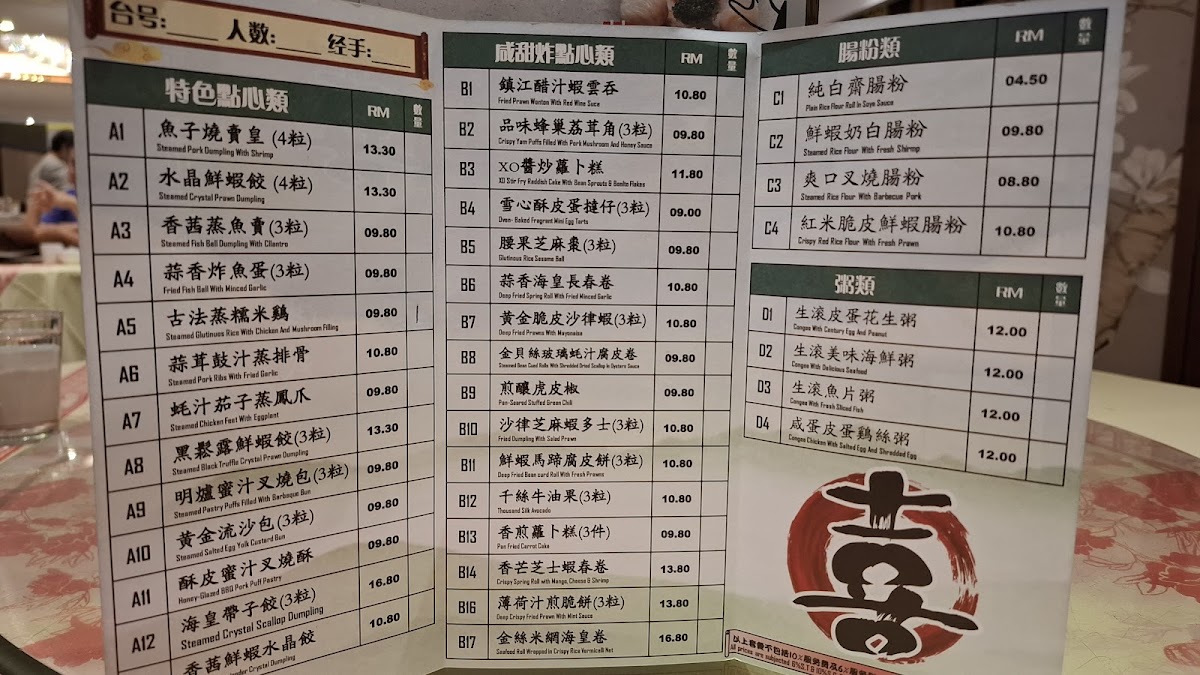 台号:____ 人数:____ 经手:____
特色點心類 RM 數量
A1 魚子燒賣皇 (4粒) 13.30
Steamed Pork Dumpling With Shrimp
A2 水晶鮮蝦餃 (4粒) 13.30
Steamed Crystal Prawn Dumpling
A3 香茜蒸魚賣 (3粒) 09.80
Steamed Fish Ball Dumpling With Cilantro
A4 蒜香炸魚蛋 (3粒) 09.80
Fried Fish Ball With Minced Garlic
A5 古法蒸糯米鷄 09.80
Steamed Glutinous Rice With Chicken And Mushroom Filling
A6 蒜茸鼓汁蒸排骨 10.80
Steamed Pork Ribs With Fried Garlic
A7 蚝汁茄子蒸鳳爪 09.80
Steamed Chicken Feet With Eggplant
A8 黑鬆露鮮蝦餃(3粒) 13.30
Steamed Black Truffle Crystal Prawn Dumpling
A9 明爐蜜汁叉燒包(3粒) 09.80
Steamed Pastry Puffs Filled With Barbeque Bun
A10 黃金流沙包(3粒) 09.80
Steamed Salted Egg Yolk Custard Bun
A11 酥皮蜜汁叉燒酥 09.80
Honey-Glazed BBQ Pork Puff Pastry
A12 海皇帶子餃(3粒) 16.80
Steamed Crystal Scallop Dumpling
香茜鮮蝦水晶餃 10.80
Crystal Dumpling
咸甜炸點心類 RM 數量
B1 鎮江醋汁蝦雲吞 10.80
Fried Prawn Wonton With Red Wine Suce
B2 品味蜂巢荔茸角(3粒) 09.80
Crispy Yam Puffs Filled With Pork Mushroom And Honey Sauce
B3 XO醬炒蘿卜糕 11.80
XO Stir Fry Raddish Cake With Bean Sprouts & Bonito Flakes
B4 雪心酥皮蛋撻仔(3粒) 09.00
Oven- Baked Fragrant Mini Egg Tarts
B5 腰果芝麻棗(3粒) 09.80
Glutinous Rice Sesame Ball
B6 蒜香海皇長春卷 10.80
Deep Fried Spring Roll With Fried Minced Garlic
B7 黃金脆皮沙律蝦(3粒) 10.80
Deep Fried Prawns With Mayonaise
B8 金貝絲玻璃蚝汁腐皮卷 09.80
Steamed Bean Curd Rolls With Shredded Dried Scallop In Oysters Sauce
B9 煎釀虎皮椒 09.80
Pan-Seared Stuffed Green Chili
B10 沙律芝麻蝦多士(3粒) 10.80
Fried Dumpling With Salad Prawn
B11 鮮蝦馬蹄腐皮餅(3粒) 10.80
Deep Fried Bean curd Roll With Fresh Prawns
B12 千絲牛油果(3粒) 10.80
Thousand Silk Avocado
B13 香煎蘿卜糕(3件) 09.80
Pan Fried Carrot Cake
B14 香芒芝士蝦春卷 13.80
Crispy Spring Roll with Mango, Cheese & Shrimp
B16 薄荷汁煎脆餅(3粒) 13.80
Deep Crispy Fried Prawn With Mint Sauce
B17 金絲米網海皇卷 16.80
Seafood Roll Wrapped in Crispy Rice Vermicelli Net
腸粉類 RM 數量
C1 純白齋腸粉 04.50
Plain Rice Flour Roll In Soya Sauce
C2 鮮蝦奶白腸粉 09.80
Steamed Rice Flour With Fresh Shirmp
C3 爽口叉燒腸粉 08.80
Steamed Rice Flour With Barbecue Pork
C4 紅米脆皮鮮蝦腸粉 10.80
Crispy Red Rice Flour With Fresh Prawn
粥類 RM 數量
D1 生滾皮蛋花生粥 12.00
Congee With Century Egg And Peanut
D2 生滾美味海鮮粥 12.00
Congee With Delicious Seafood
D3 生滾魚片粥 12.00
Congee With Fresh Sliced Fish
D4 咸蛋皮蛋鷄絲粥 12.00
Congee Chicken With Salted Egg And Shredded Egg
喜
以上套餐不包括10%服務費及6%服務
All prices are subjected 6% S.T & 10% S